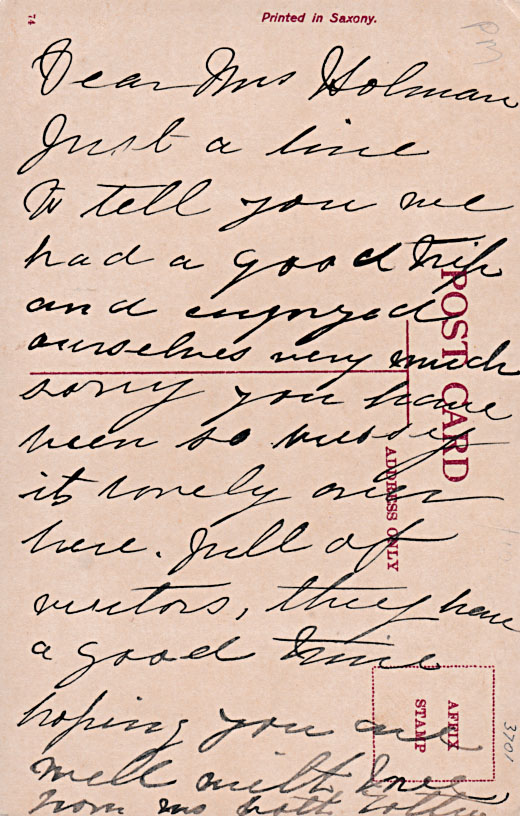 74
Printed in Saxony.
Dear Mrs Holman
Just a line
to tell you we
had a good trip
and enjoyed
ourselves very much
sorry you have
been so
its lovely over
here. full of
visitors, they have
a good time
hoping you are
well with love
from us both
POST CARD
ADDRESS ONLY
AFFIX
STAMP
3701